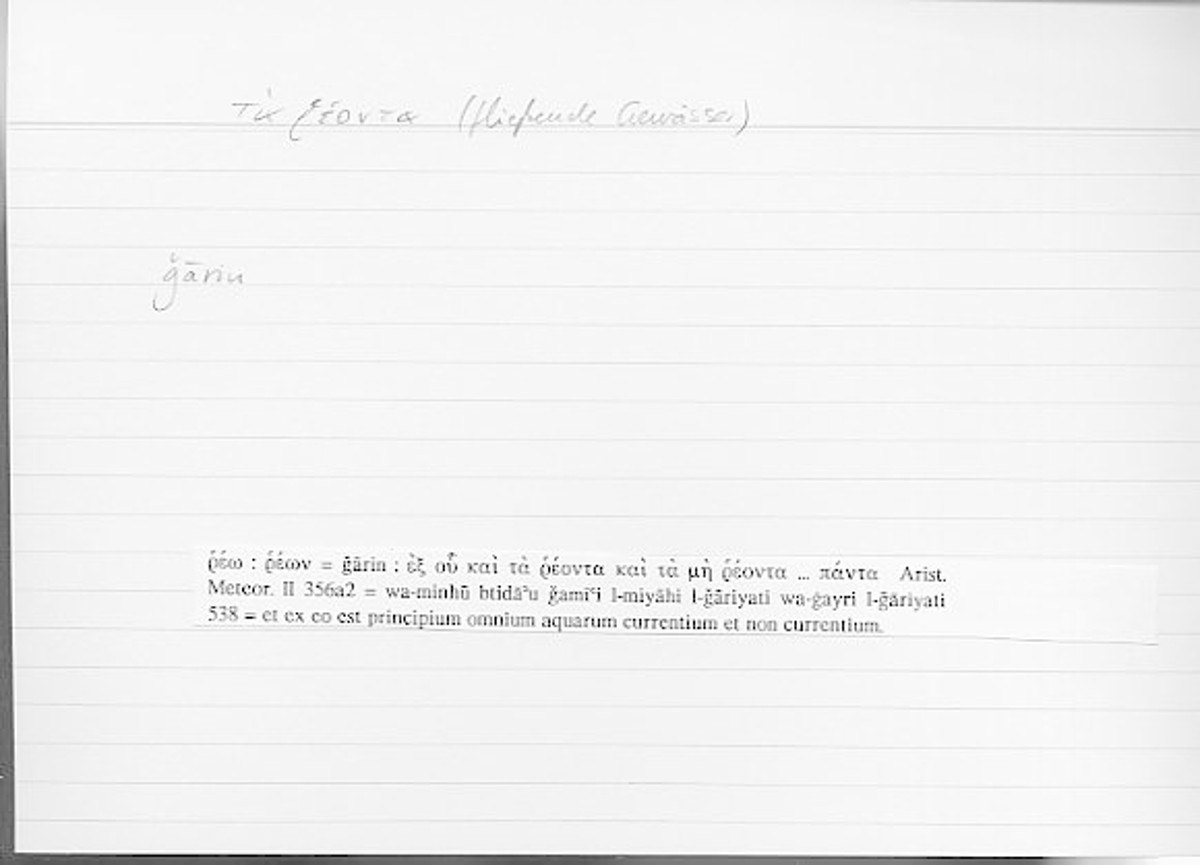 τὰ ῥέοντα (fließende Gewässer)
ǧārin
ῥέω : ῥέων = ǧārin : ἐξ οὗ καὶ τὰ ῥέοντα καὶ τὰ μὴ ῥέοντα ... πάντα Arist.
Meteor. II 356a2 = wa-minhū btidāʾu ǧamīʿi l-miyāhi l-ǧāriyati wa-ġayri l-ǧāriyati
538 = et ex eo est principium omnium aquarum currentium et non currentium.